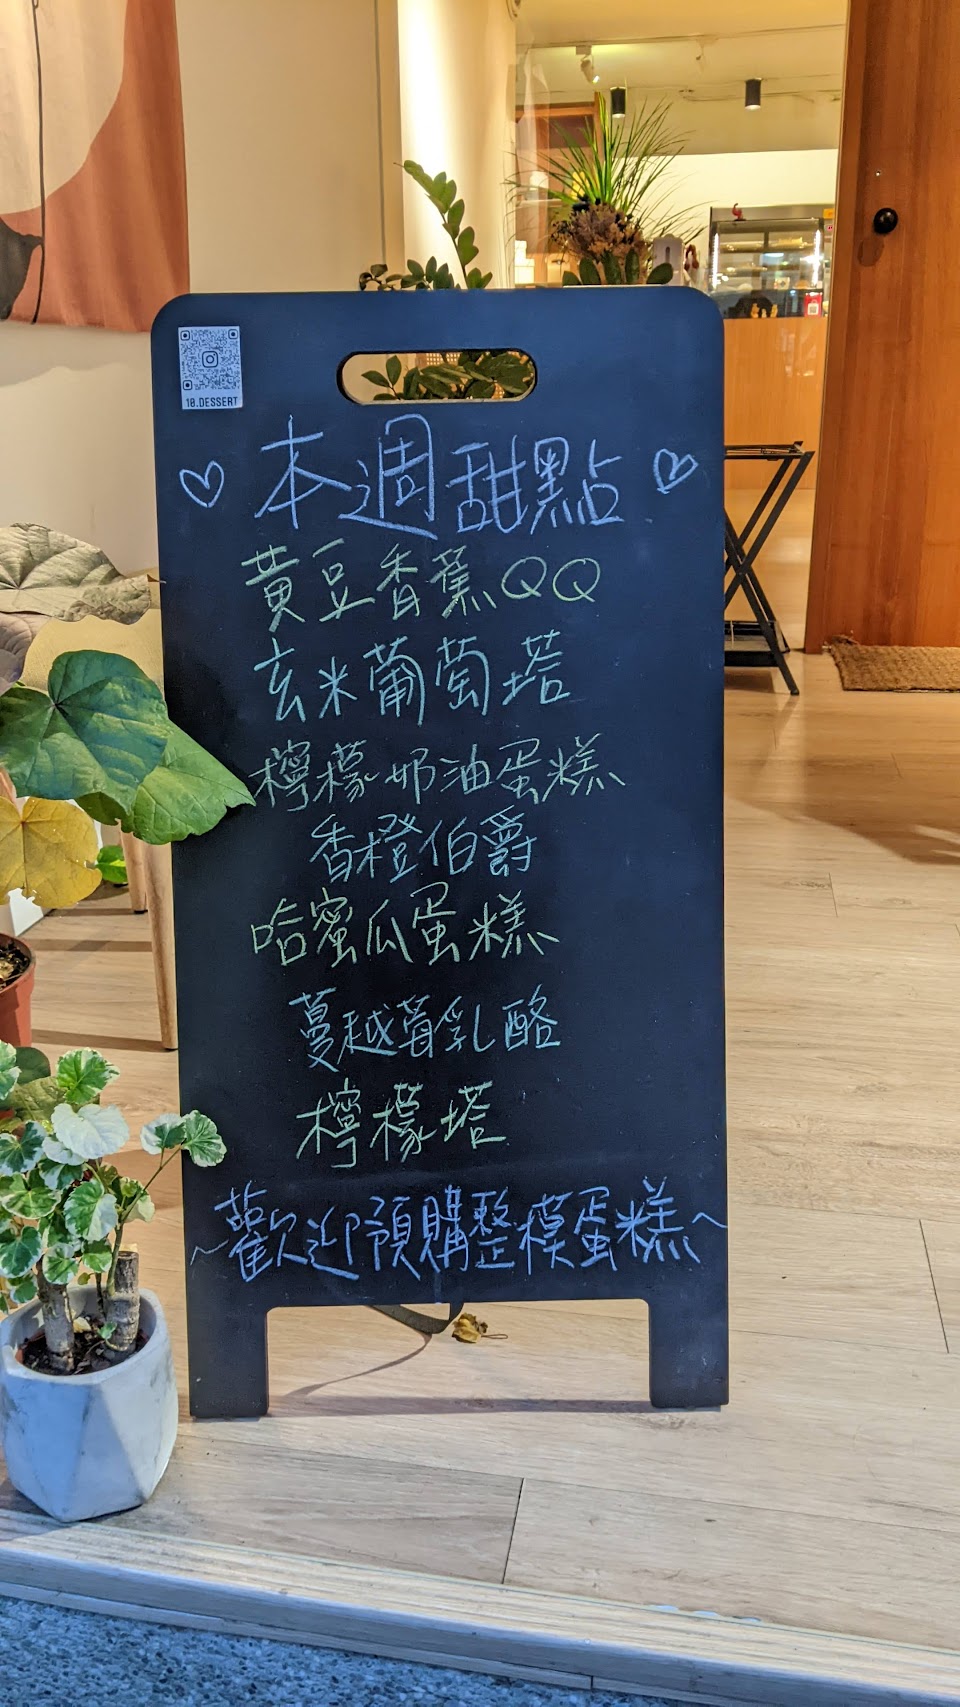 10.DESSERT
♡ 本週甜點 ♡
黃豆香蕉QQ
玄米葡萄塔
檸檬奶油蛋糕
香橙伯爵
哈蜜瓜蛋糕
蔓越莓乳酪
檸檬塔
~歡迎預購整模蛋糕~